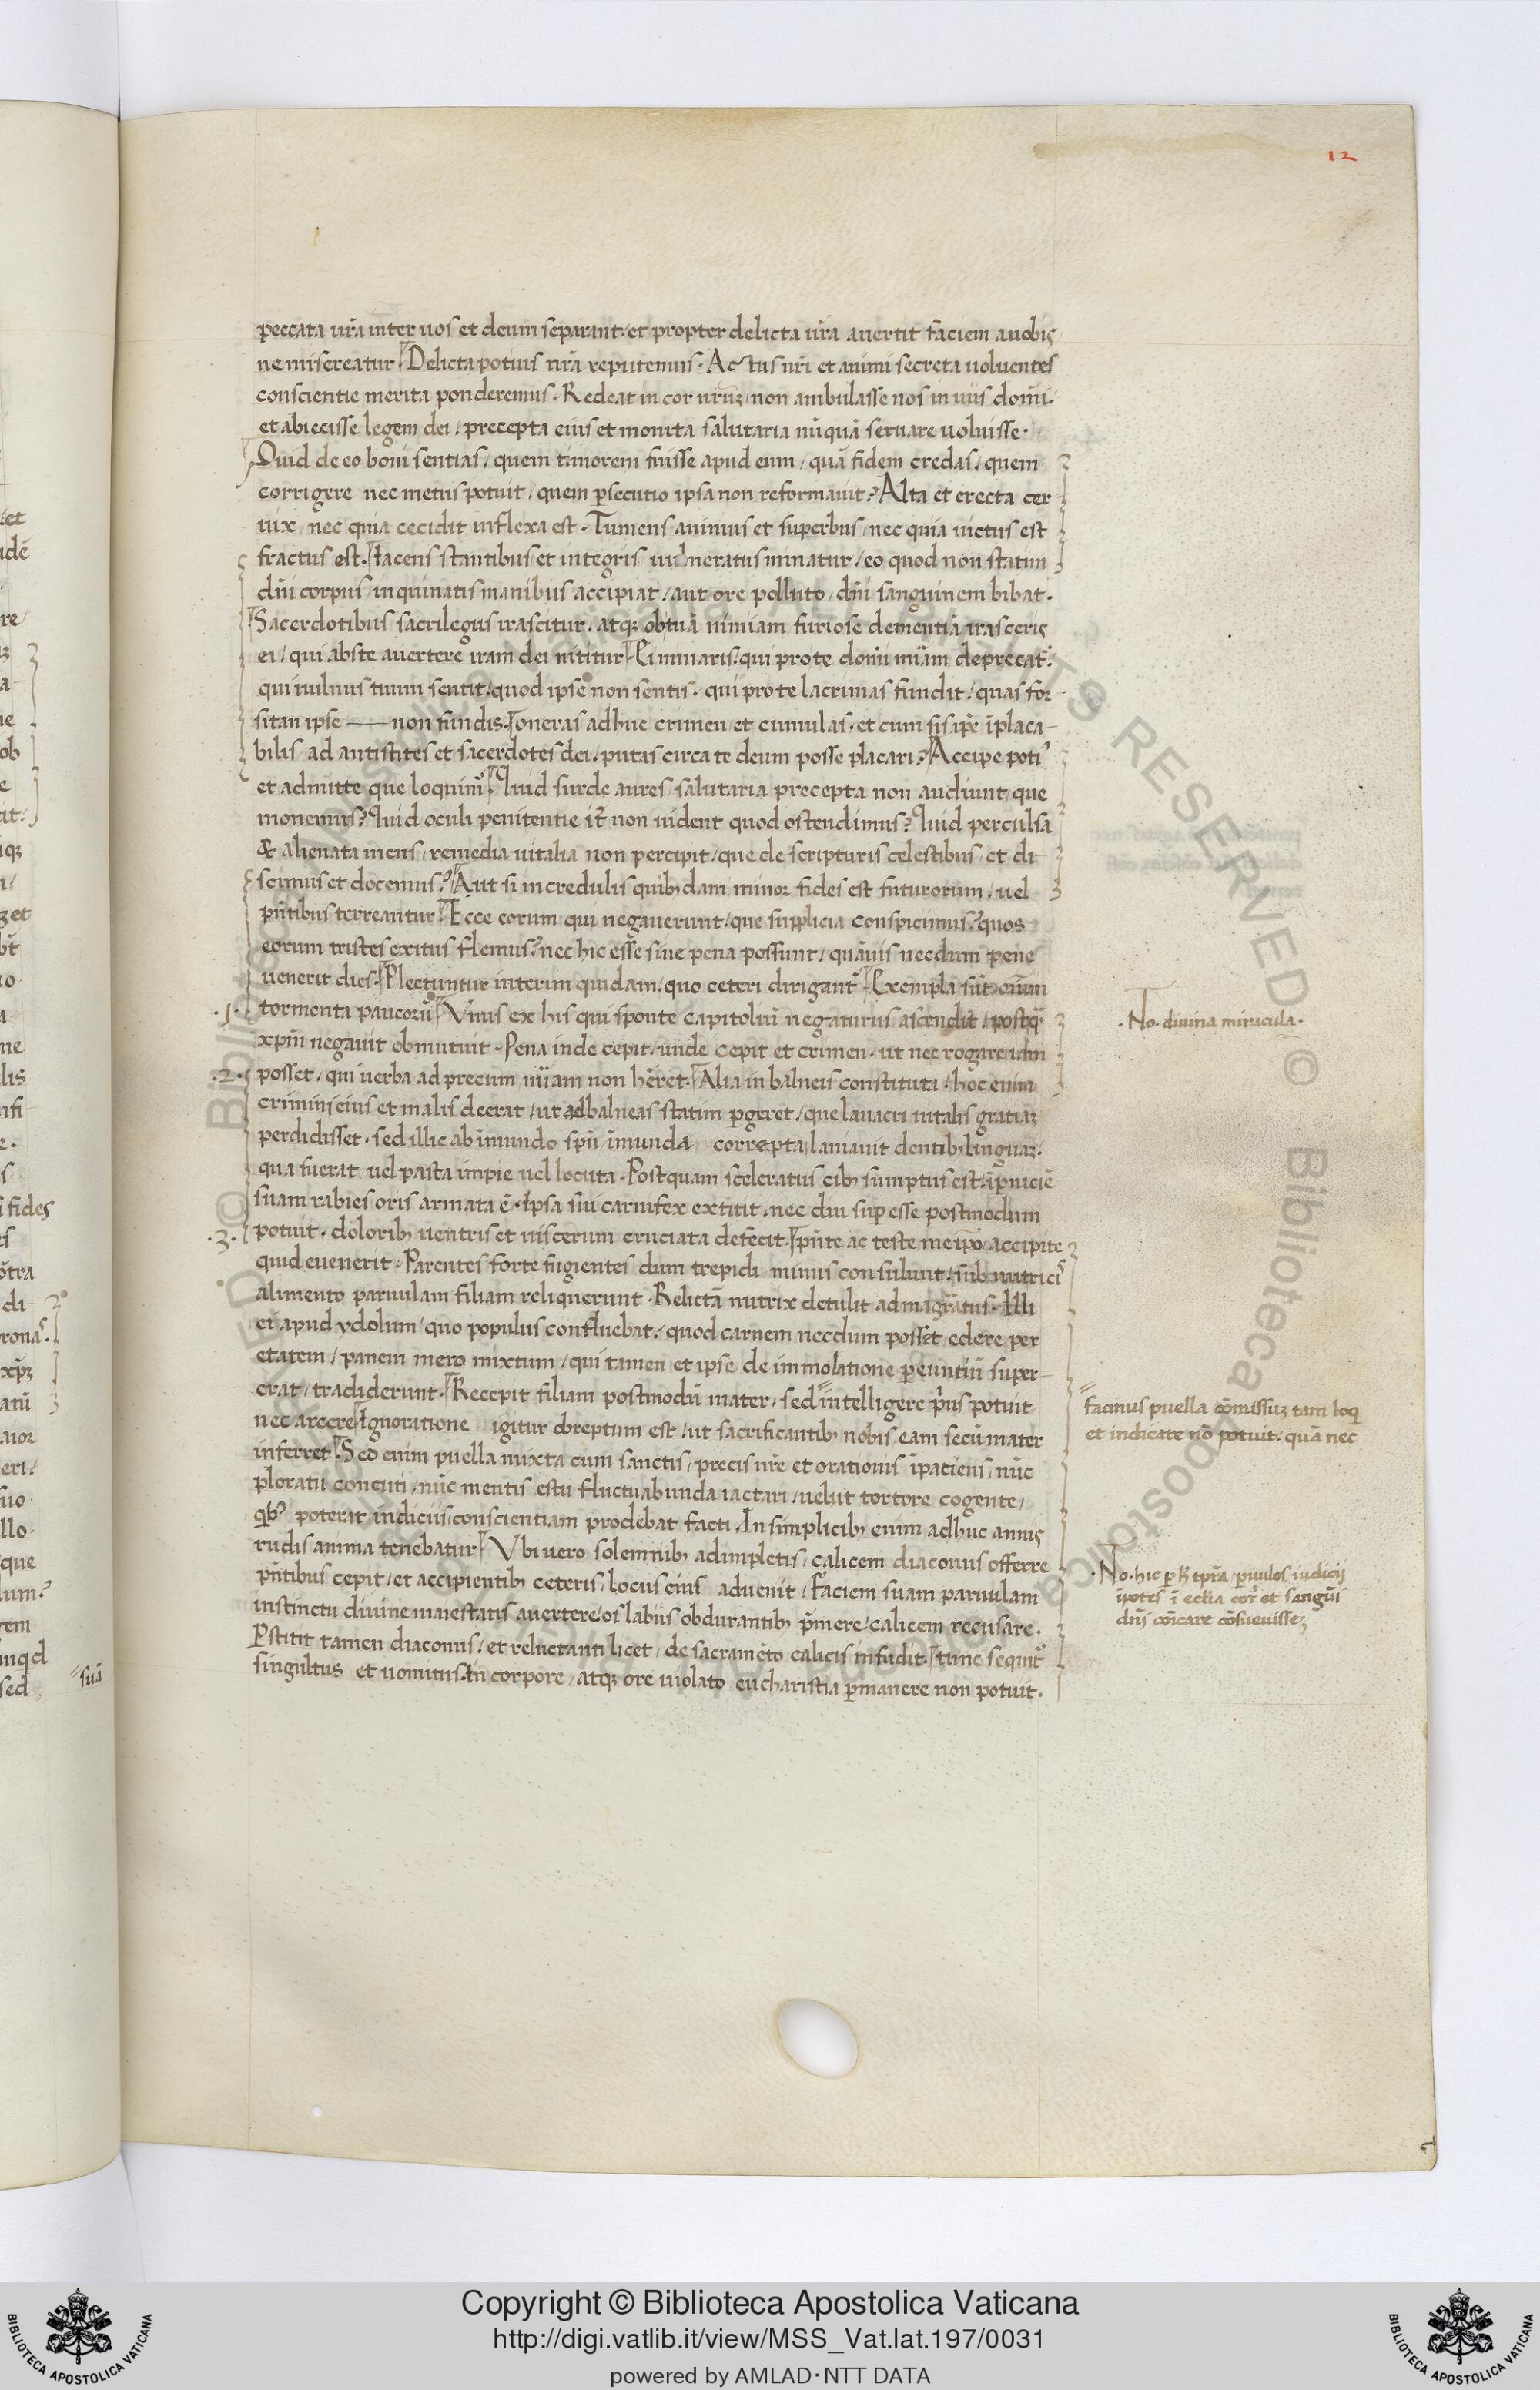 12
peccata ur̃a inter uos et deum separant. et propter delicta ur̃a auertit faciem a uobis
ne misereatur. Delicta potius nr̃a reputemus. Actus nr̃i et animi secreta uoluentes
conscientie merita ponderemus. Redeat in cor nr̃uꝫ non ambulasse nos in uiis domĩ.
et abiecisse legem dei, precepta eius et monita salutaria nũquã seruare uoluisse.
Quid de eo boni sentias, quem timorem fuisse apud eum, quã fidem credas, quem
corrigere nec metus potuit, quem ꝑsecutio ipsa non reformauit? Alta et erecta cer
uix, nec quia cecidit inflexa est. Tumens animus et superbus, nec quia uictus est
fractus est. Iacens stantibus et integris uulneratus minatur, eo quod non statim
dñi corpus inquinatis manibus accipiat, aut ore polluto, dñi sanguinem bibat.
Sacerdotibus sacrilegus irascitur, atqꝫ ob tuã nimiam furiose dementiã irasceris
ei, qui abs te auertere iram dei nititur. Ei minaris, qui pro te domĩ mĩam deprecat᷑.
qui uulnus tuum sentit, quod ipse non sentis. qui pro te lacrimas fundit, quas for
sitan ipse — non fundis. oneras adhuc crimen et cumulas. et cum sis ip̃e ĩplaca-
bilis ad antistites et sacerdotes dei, putas circa te deum posse placari? Accipe potiꝰ
et admitte que loquim᷑. Quid surde aures salutaria precepta non audiunt, que
monemus? Quid oculi penitentie it̃ non uident quod ostendimus? Quid perculsa
& alienata mens, remedia uitalia non percipit, que de scripturis celestibus et di
scimus et docemus? Aut si incredulis quibꝫdam minor fides est futurorum, uel
pñtibus terreantur. Ecce eorum qui negauerunt, que supplicia conspicimus? quos
eorum tristes exitus flemus? nec hic esse sine pena possunt, quãuis necdum pene
uenerit dies. Plectuntur interim quidam, quo ceteri dirigant᷑. Exempla sũt oĩum
.1. tormenta paucorũ. Vnus ex his qui sponte Capitoliũ negaturus ascendit, postq̃
xp̃m negauit obmutuit. Pena inde cepit, unde cepit et crimen. ut nec rogare iam
.2. posset, qui uerba ad precum mĩam non hẽret. Alia in balneis constituti, hoc enim
crimini eius et malis deerat, ut ad balneas statim ꝑgeret, que lauacri uitalis gratiaꝫ
perdidisset. sed illic ab ĩmundo spũ ĩmunda correpta laniauit dentibꝫ linguaꝫ.
qua fuerat uel pasta impie uel locuta. Postquam sceleratus cibꝫ sumptus est, ĩ ꝑniciẽ
suam rabies oris armata ẽ. Ipsa sui carnifex extitit, nec diu suꝑesse postmodum
.3. potuit. doloribꝫ uentris et uiscerum cruciata defecit. pñte ac teste me ip̃o accipite
quid euenerit. Parentes forte fugientes dum trepidi minus consulunt, sub nutricis
alimento paruulam filiam reliquerunt. Relictã nutrix detulit ad magr̃atus. Illi
ei apud ydolum, quo populus confluebat, quod carnem necdum posset edere per
etatem, panem mero mixtum, qui tamen et ipse de immolatione pereuntiũ super-
erat, tradiderunt. Recepit filiam postmodũ mater. sed intelligere p̃us potuit
nec arcere. Ignoratione igitur obreptum est, ut sacrificantibꝫ nobis eam secũ mater
inferret. Sed enim puella mixta cum sanctis, precis nr̃e et orationis ĩpatiens, nũc
ploratu concuti, nũc mentis estu fluctuabunda iactari, uelut tortore cogente,
qbꝰ poterat indiciis conscientiam prodebat facti. In simplicibꝫ enim adhuc annis
rudis anima tenebatur. Vbi uero solemnibꝫ adimpletis, calicem diaconus offerre
pñtibus cepit, et accipientibꝫ ceteris, locus eius aduenit. Faciem suam paruulam
instinctu diuine maiestatis auertere, os labiis obdurantibꝫ p̃mere, calicem recusare.
Pstitit tamen diaconus, et reluctanti licet, de sacramẽto calicis infudit. tunc sequit᷑
singultus et uomitus. In corpore, atqꝫ ore uiolato eucharistia ꝑmanere non potuit.
.No. diuina miracula.
facinus puella cõmissuꝫ tam loq
et indicare nõ potuit, quã nec
.No. hic tpr̃a ꝑuulos iudicij
ĩ ecclĩa et sangũi
dñj cõicare cõsueuisse
Copyright © Biblioteca Apostolica Vaticana
http://digi.vatlib.it/view/MSS_Vat.lat.197/0031
powered by AMLAD·NTT DATA